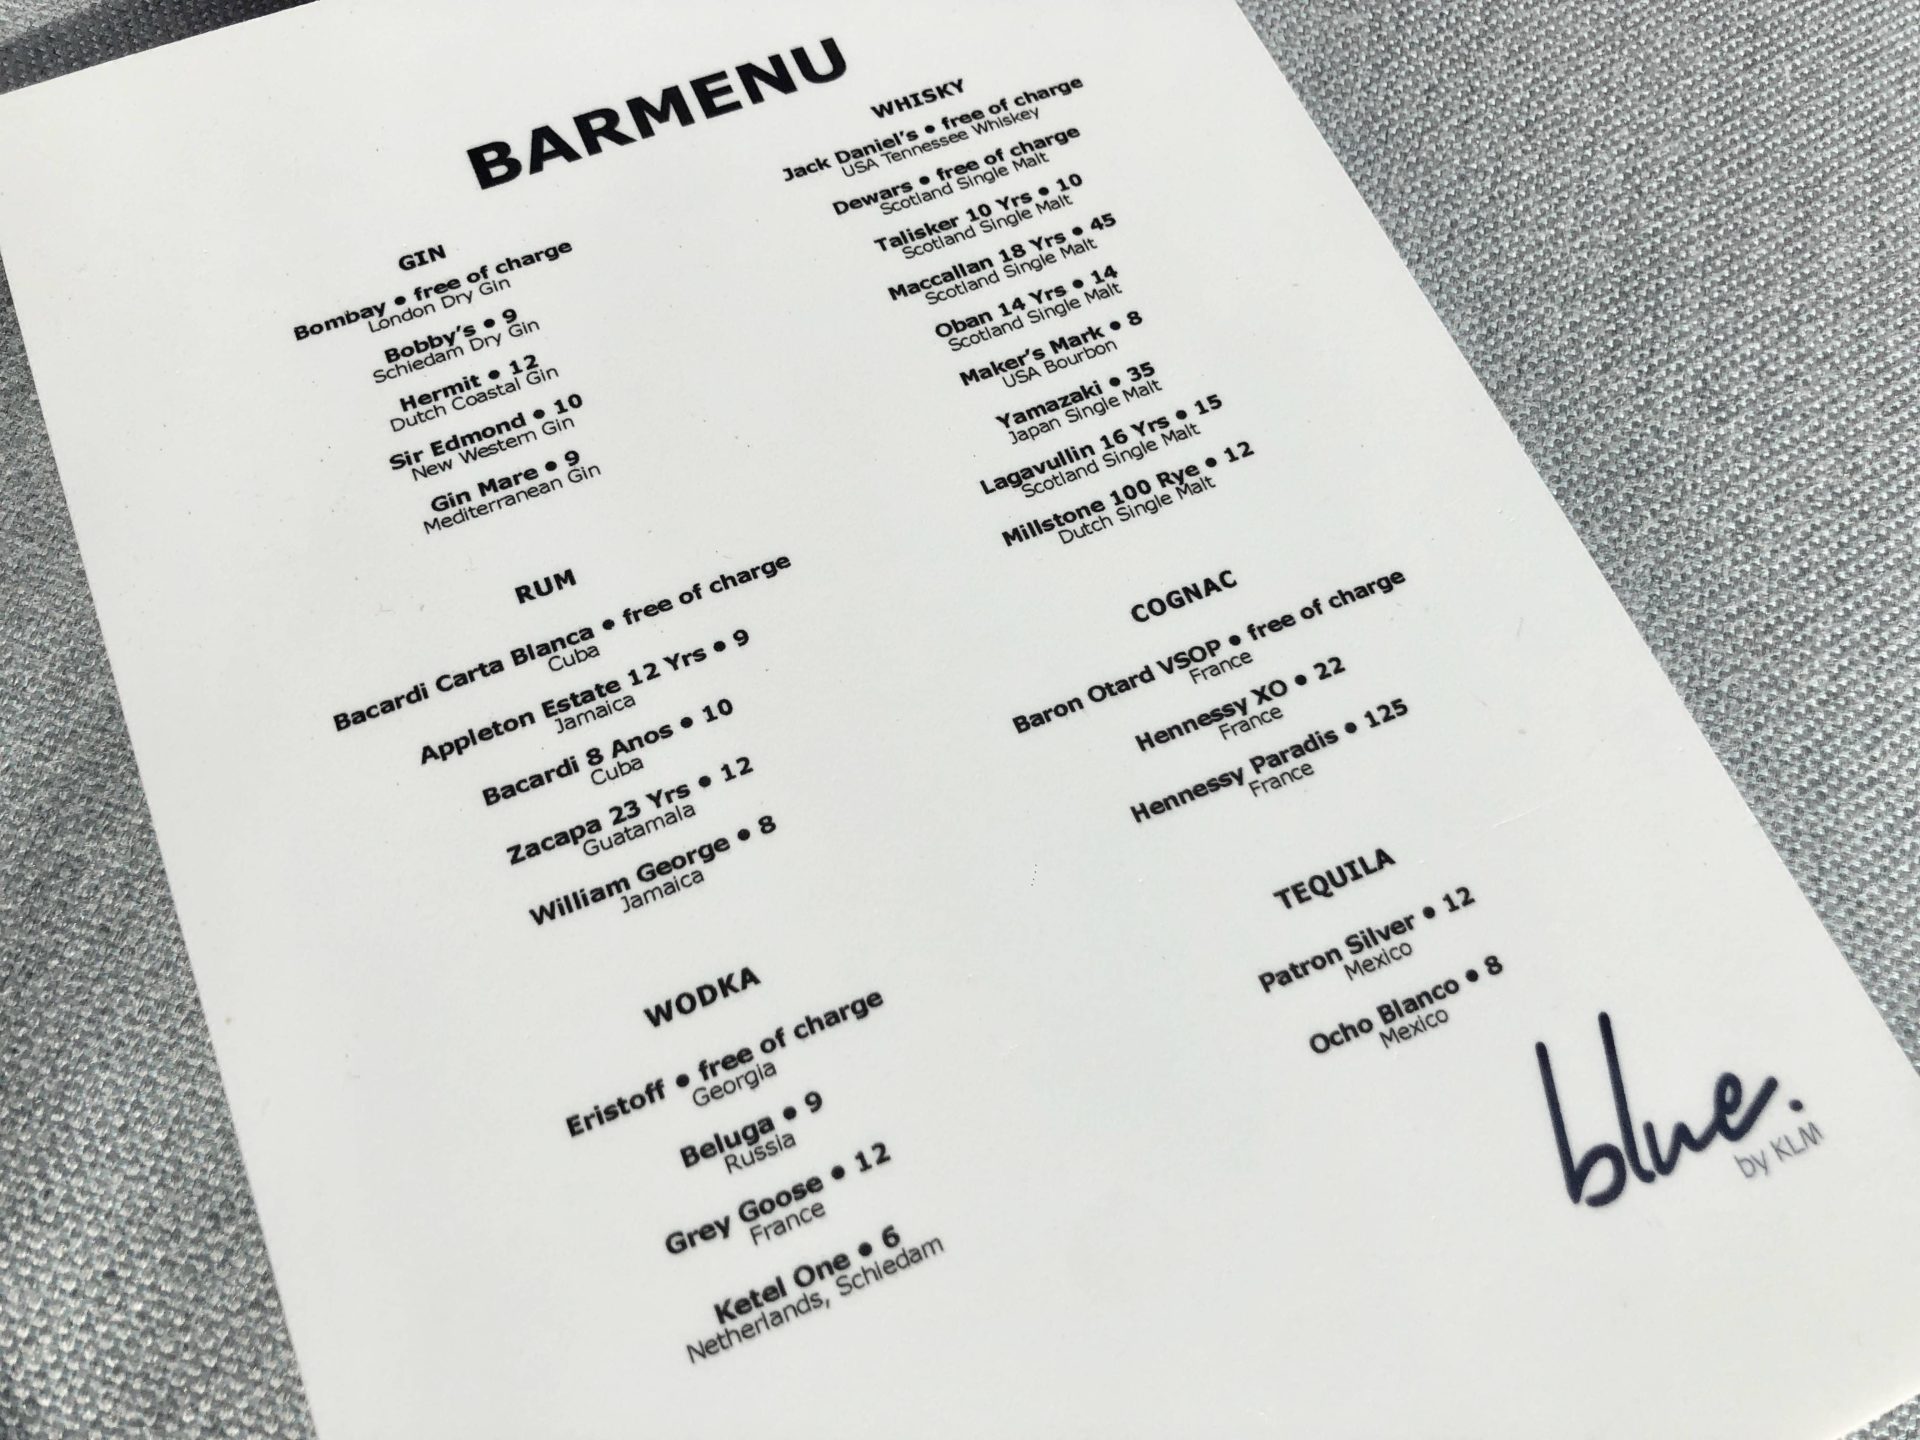 BARMENU
GIN
Bombay • free of charge
London Dry Gin
Bobby's • 9
Schiedam Dry Gin
Hermit • 12
Dutch Coastal Gin
Sir Edmond • 10
New Western Gin
Gin Mare • 9
Mediterranean Gin
RUM
Bacardi Carta Blanca • free of charge
Cuba
Appleton Estate 12 Yrs • 9
Jamaica
Bacardi 8 Anos • 10
Cuba
Zacapa 23 Yrs • 12
Guatamala
William George • 8
Jamaica
WODKA
Eristoff • free of charge
Georgia
Beluga • 9
Russia
Grey Goose • 12
France
Ketel One • 6
Netherlands, Schiedam
WHISKY
Jack Daniel's • free of charge
USA Tennessee Whiskey
Dewars • free of charge
Scotland Single Malt
Talisker 10 Yrs • 10
Scotland Single Malt
Maccallan 18 Yrs • 45
Scotland Single Malt
Oban 14 Yrs • 14
Scotland Single Malt
Maker's Mark • 8
USA Bourbon
Yamazaki • 35
Japan Single Malt
Lagavullin 16 Yrs • 15
Scotland Single Malt
Millstone 100 Rye • 12
Dutch Single Malt
COGNAC
Baron Otard VSOP • free of charge
France
Hennessy XO • 22
France
Hennessy Paradis • 125
France
TEQUILA
Patron Silver • 12
Mexico
Ocho Blanco • 8
Mexico
blue.
by KLM